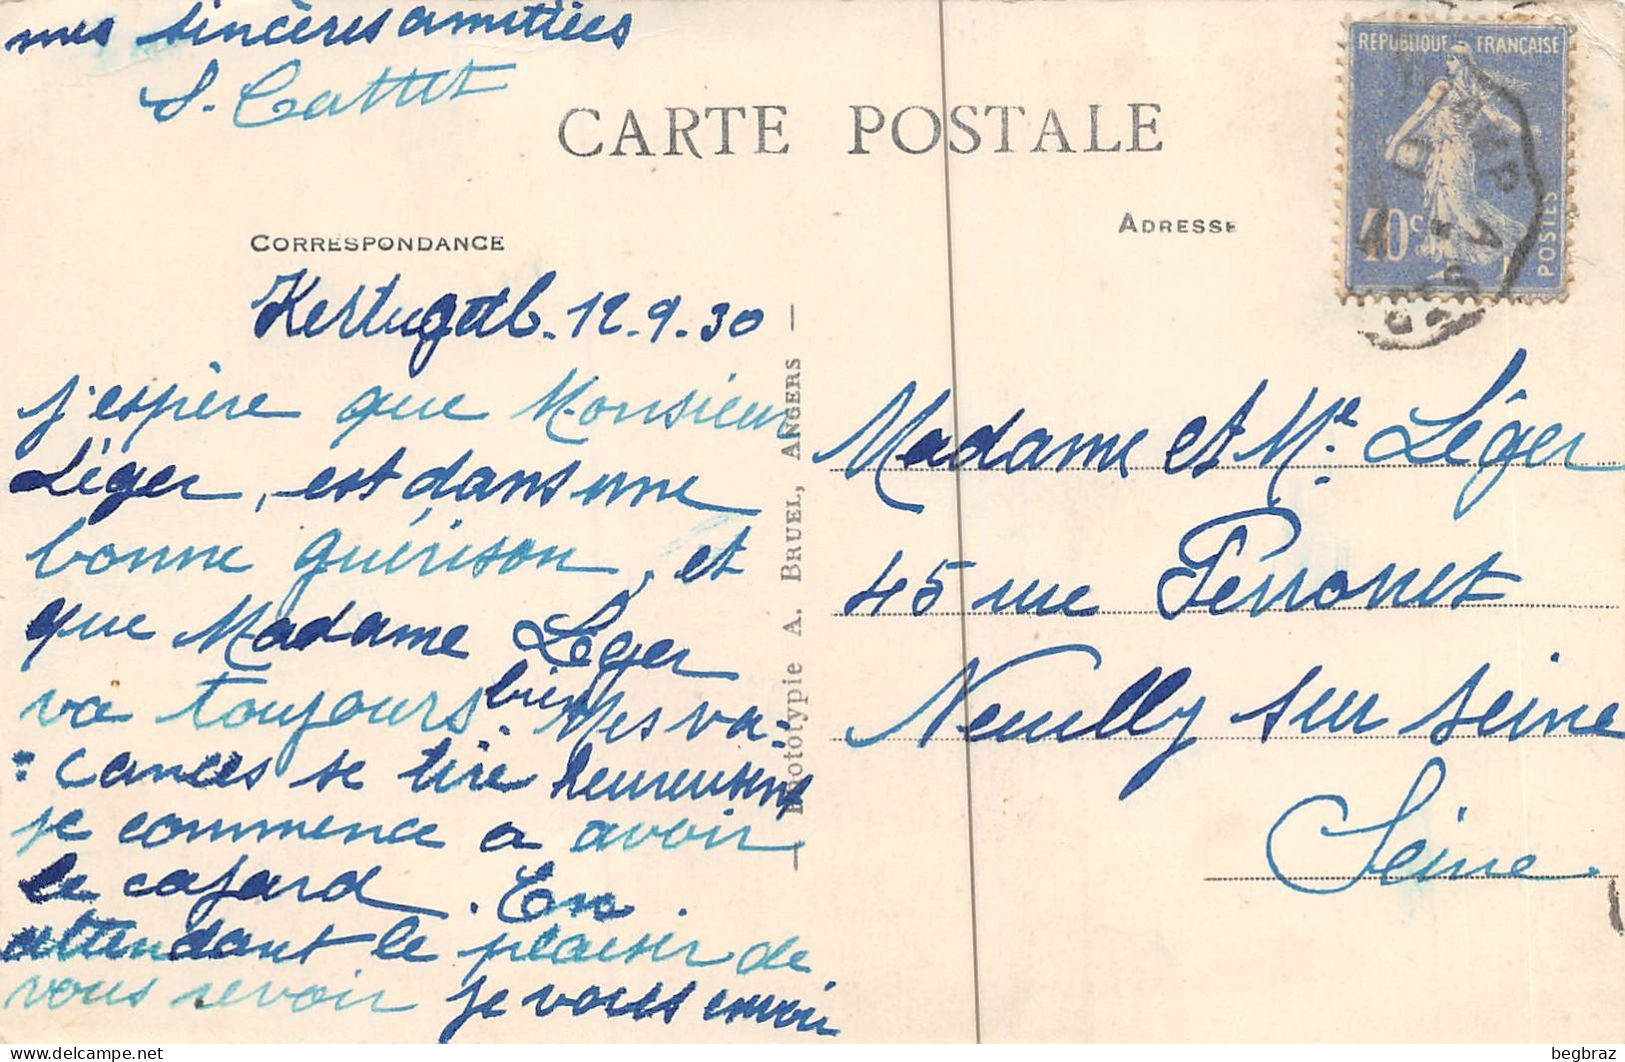 mes sincères amitiées
CARTE POSTALE
CORRESPONDANCE
ADRESSE
REPUBLIQUE FRANÇAISE
40c
POSTES
12.9.30
j'espère que Monsieur
Léger, est dans une
bonne guérison, et
que Madame Léger
va toujours bien. Mes va-
-cances se tire heureusement
je commence a avoir
le cafard. En
attendant le plaisir de
vous revoir je vous envoie
Phototypie A. BRUEL, ANGERS
Madame et Mr. Léger
45 rue Perronet
Neuilly sur Seine
Seine.
begbraz